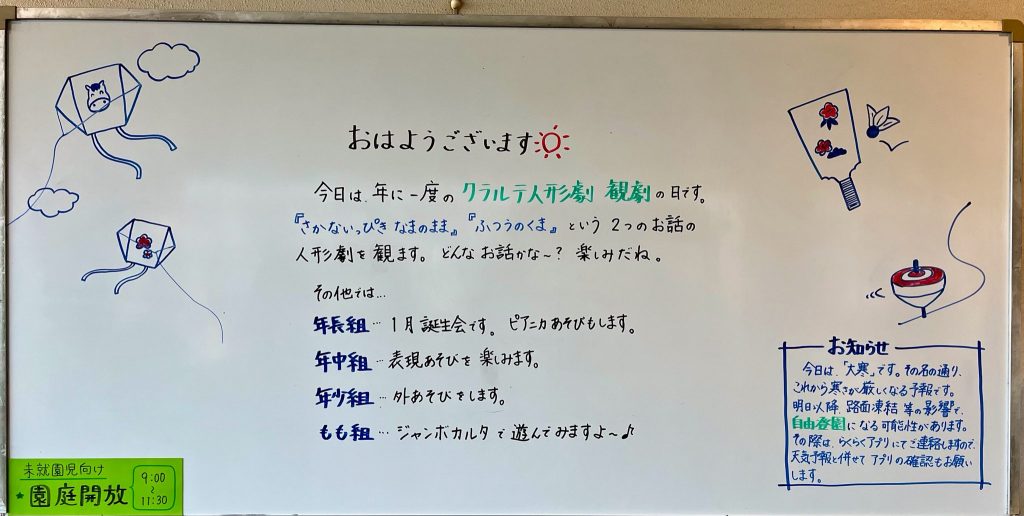 おはようございます
今日は、年に一度の クラルテ人形劇 観劇 の日です。
『さかないっぴき なまのまま』『ふつうのくま』という 2つのお話の
人形劇を観ます。どんなお話かな〜？ 楽しみだね。
その他では…
年長組…1月誕生会です。ピアニカあそびもします。
年中組…表現あそびを楽しみます。
年少組…外あそびをします。
もも組…ジャンボカルタで遊んでみますよ〜♪
お知らせ
今日は、「大寒」です。その名の通り、
これから寒さが厳しくなる予報です。
明日以降、路面凍結等の影響で、
自由登園になる可能性があります。
その際は、らくらくアプリにてご連絡しますので、
天気予報と併せてアプリの確認もお願い
します。
未就園児向け
★園庭開放
9:00
〜
11:30